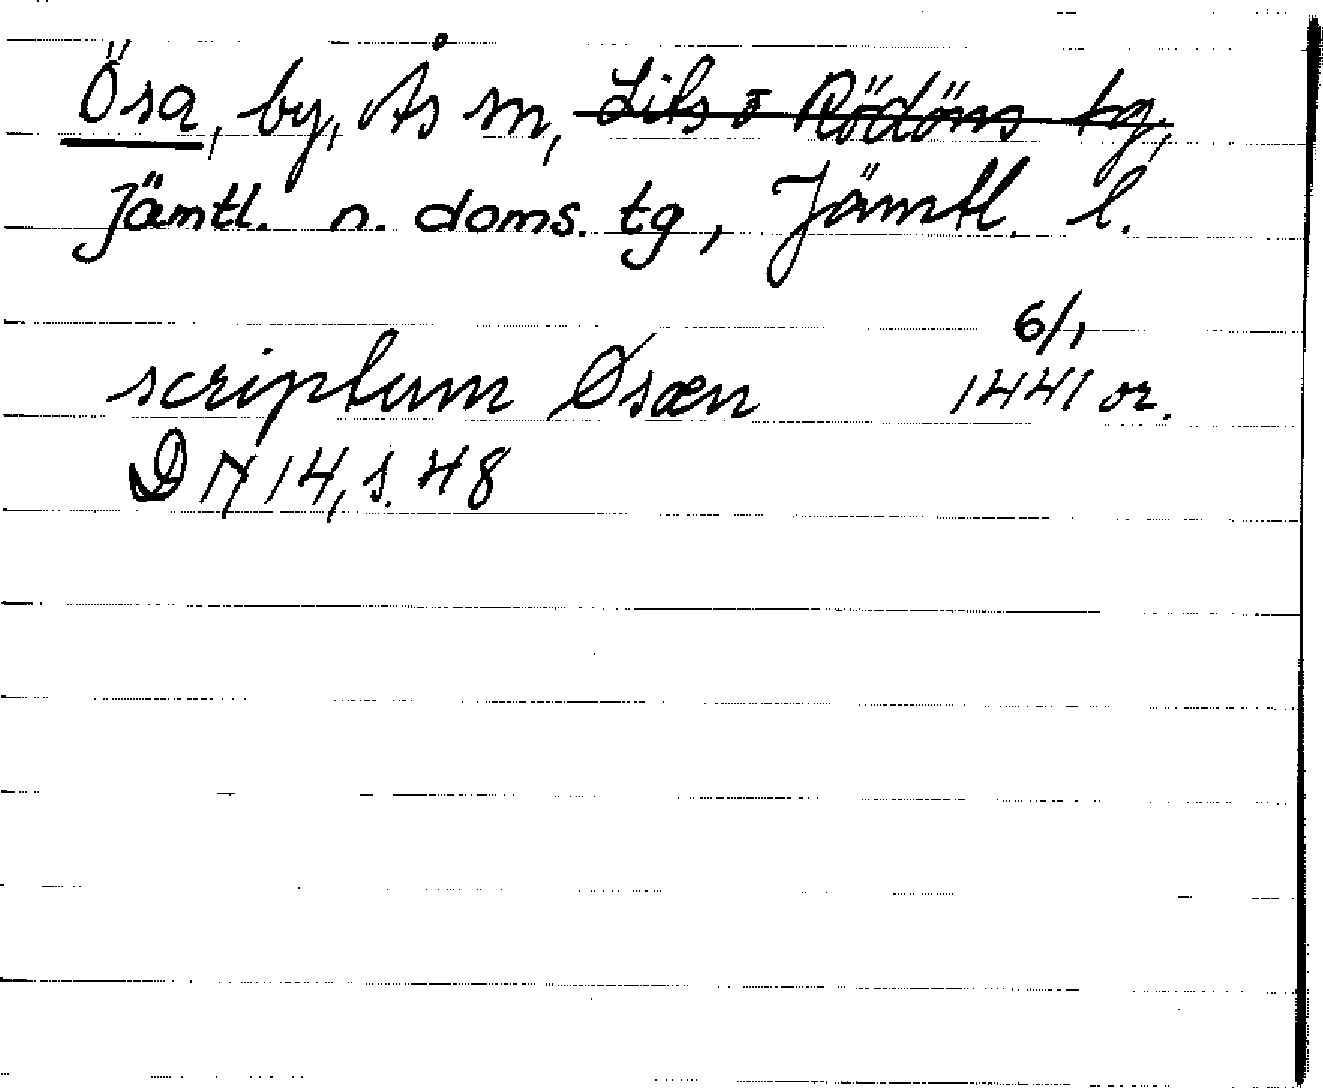 Ösa, by, Ås sn, Lits o Rödöns tg,
Jämtl. n. doms. tg, Jämtl. l.
6/1
scriptum Øsæn 1441 or.
DN 14, s. 48